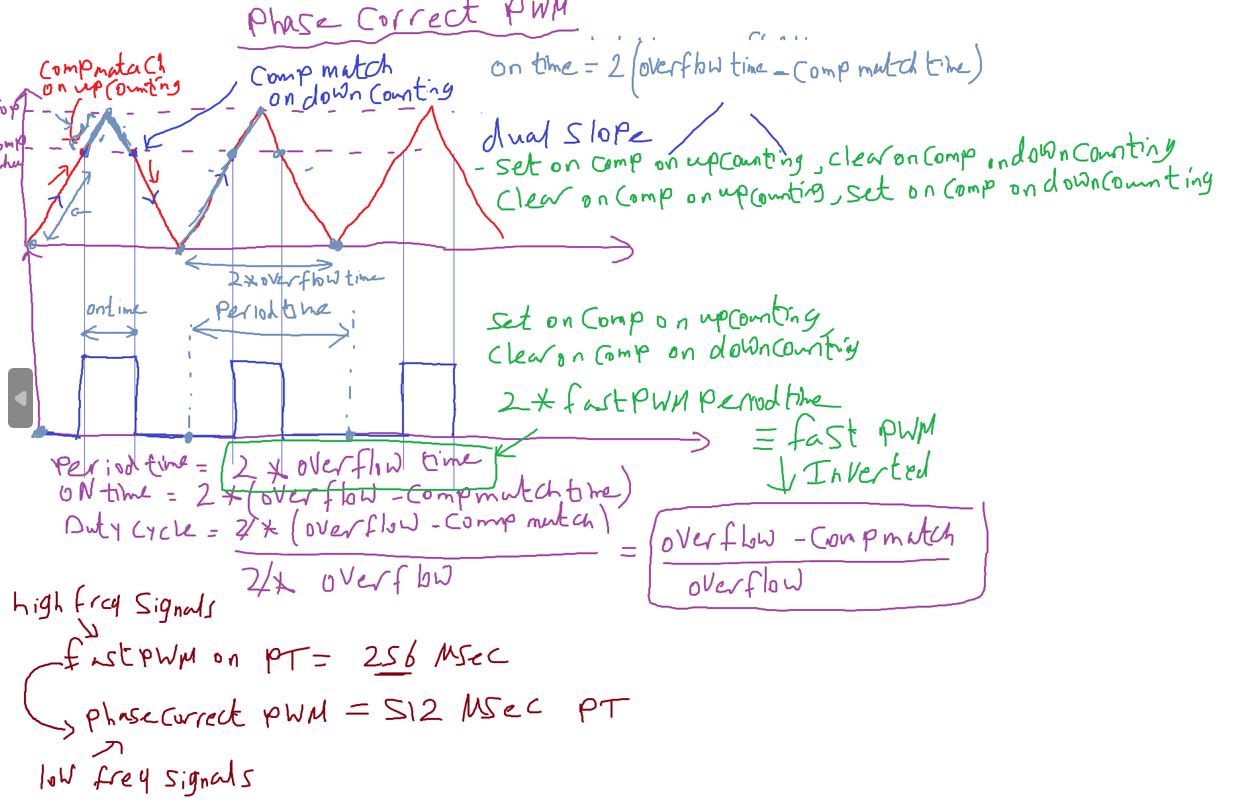 Phase Correct PWM
Comp match
on upcounting
Comp match
on down counting
on time = 2 (overflow time - Comp match time)
dual slope
- set on comp on upcounting, clear on comp on down counting
clear on comp on upcounting, set on comp on down counting
2 * overflow time
on time
Period time
set on Comp on upcounting,
clear on Comp on down counting
2 * fast PWM Period time
≡ fast PWM
↓ Inverted
Period time = 2 * overflow time
ON time = 2 * (overflow - Comp match time)
Duty cycle = 2 * (overflow - Comp match)
2 * overflow
= overflow - Comp match
overflow
high freq signals
fast PWM on PT = 256 Msec
phase currect PWM = 512 Msec PT
low freq signals